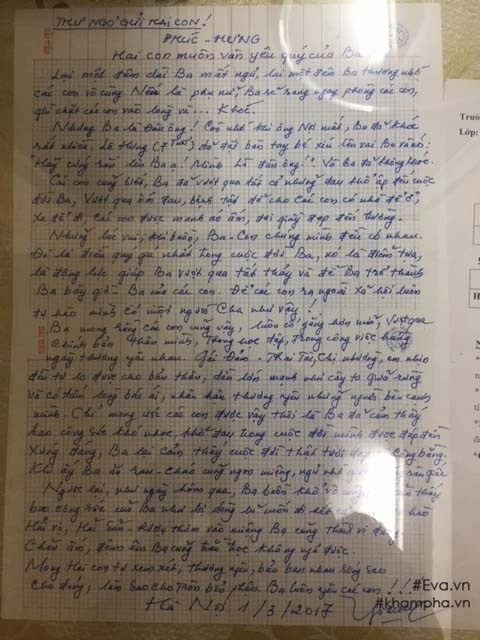 THƯ NGỎ GỬI HAI CON!
PHÚC - HƯNG
Hai con muôn vàn yêu quý của Ba
Lại một đêm dài Ba mất ngủ, lại một đêm Ba thương nhớ
các con vô cùng. Nếu là phụ nữ, Ba sẽ sang ngay phòng các con,
ghì chặt các con vào lòng và... Khóc.
Nhưng Ba là đàn ông! Con nhớ khi ông Nội mất, Ba đã khóc
rất nhiều, Lê Hưng (7 tuổi) đã đặt bàn tay bé xíu lên vai Ba và nói:
"Hãy cứng rắn lên Ba ạ! Mình là đàn ông!". Và Ba đã không khóc.
Các con cũng biết, Ba đã vượt qua tất cả những đau khổ ập đến cuộc
đời Ba, Vượt qua ốm đau, bệnh tật để cho Các con có nhà để ở,
Xe để đi, Các con được manh áo ấm, đôi giày đẹp đến trường.
Những lúc vui, khi buồn, Ba - Con chúng mình đều có nhau.
Đó là điều quý giá nhất trong cuộc đời Ba, nó là điểm tựa,
là động lực giúp Ba vượt qua tất thảy và để Ba trở thành
Ba bây giờ - Ba của các con. Để các con ra ngoài xã hội luôn
tự hào mình có một người Cha như vậy!
Ba mong rằng các con vững vàng, luôn cố gắng hơn nữa, Vượt qua
Chính bản thân mình, Trong học tập, trong công việc hàng
ngày thương yêu nhau.
đều tự lo được cho bản thân, dần lớn mạnh như cây to
và có tấm lòng bác ái, nhân hậu thương yêu những người bên cạnh
mình. Chỉ mong ước các con được vậy thôi là Ba đã cảm thấy
bao công sức khó nhọc, khổ đau trong cuộc đời mình được đáp đền
xứng đáng, Ba lại cảm thấy cuộc đời thật tươi đẹp và công bằng.
Khi ấy Ba ăn rau - cháo cũng ngon miệng, ngủ
Ngược lại, như ngày hôm qua, Ba buồn khổ vô cùng
bao công sức của Ba như bị dòng lũ cuốn đi hết
Hải vị, Hải Sản - Rượu thơm vào miệng Ba cũng thành vị đắng
Chăn ấm, đệm êm Ba cũng trằn trọc không ngủ được.
Mong Hai con tự xem xét, thương yêu, bảo ban nhau sống sao
Cho đúng, làm sao cho tròn bổn phận. Ba luôn yêu các con!!!
Hà Nội 1/3/2017
#Eva.vn
#khampha.vn
Trườ
Lớp: